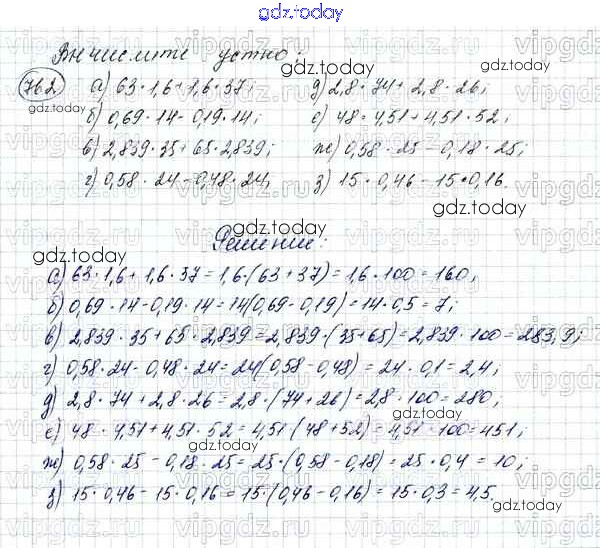 gdz.today
Вычислите устно:
762 а) 63·1,6+1,6·37; д) 2,8·74+2,8·26;
б) 0,69·14-0,19·14; е) 48·4,51+4,51·52;
в) 2,839·35+65·2,839; ж) 0,58·25-0,18·25;
г) 0,58·24-0,48·24; з) 15·0,46-15·0,16.
Решение:
а) 63·1,6+1,6·37=1,6·(63+37)=1,6·100=160;
б) 0,69·14-0,19·14=14(0,69-0,19)=14·0,5=7;
в) 2,839·35+65·2,839=2,839·(35+65)=2,839·100=283,9;
г) 0,58·24-0,48·24=24(0,58-0,48)=24·0,1=2,4;
д) 2,8·74+2,8·26=2,8·(74+26)=2,8·100=280;
е) 48·4,51+4,51·52=4,51(48+52)=4,51·100=451;
ж) 0,58·25-0,18·25=25·(0,58-0,18)=25·0,4=10;
з) 15·0,46-15·0,16=15·(0,46-0,16)=15·0,3=4,5.